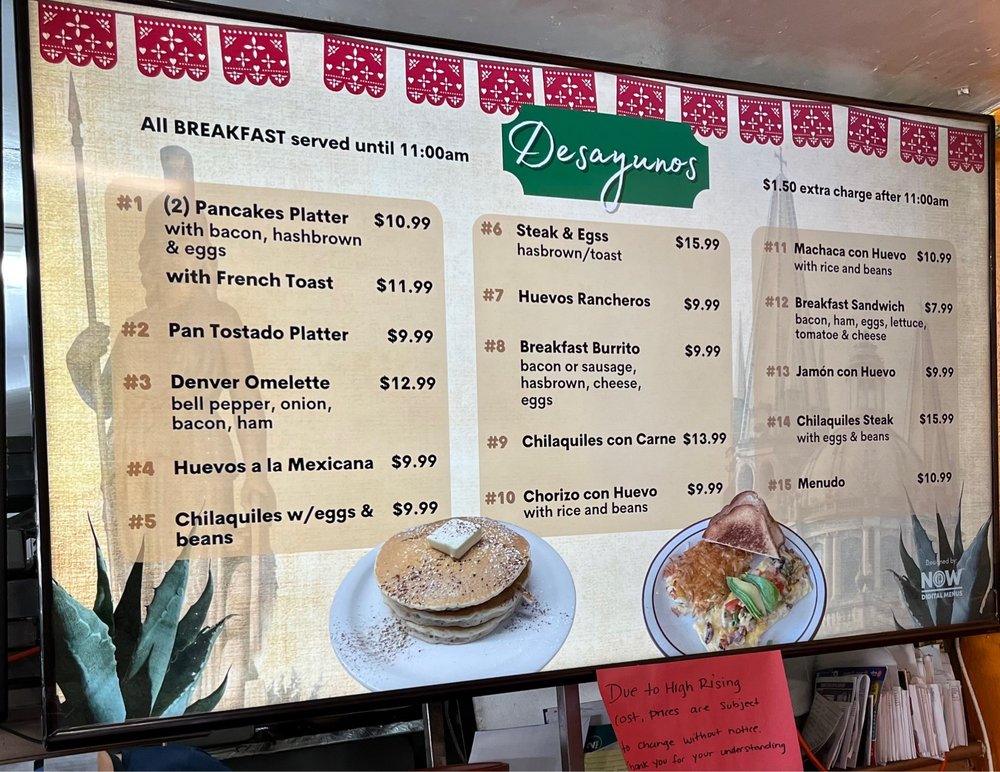 All BREAKFAST served until 11:00am
Desayunos
$1.50 extra charge after 11:00am
#1 (2) Pancakes Platter $10.99
with bacon, hashbrown
& eggs
with French Toast $11.99
#2 Pan Tostado Platter $9.99
#3 Denver Omelette $12.99
bell pepper, onion,
bacon, ham
#4 Huevos a la Mexicana $9.99
#5 Chilaquiles w/eggs & $9.99
beans
#6 Steak & Egss $15.99
hasbrown/toast
#7 Huevos Rancheros $9.99
#8 Breakfast Burrito $9.99
bacon or sausage,
hasbrown, cheese,
eggs
#9 Chilaquiles con Carne $13.99
#10 Chorizo con Huevo $9.99
with rice and beans
#11 Machaca con Huevo $10.99
with rice and beans
#12 Breakfast Sandwich $7.99
bacon, ham, eggs, lettuce,
tomatoe & cheese
#13 Jamón con Huevo $9.99
#14 Chilaquiles Steak $15.99
with eggs & beans
#15 Menudo $10.99
Designed by
NOW
DIGITAL MENUS
Due to High Rising
cost, prices are subject
to change without notice.
Thank you for your understanding